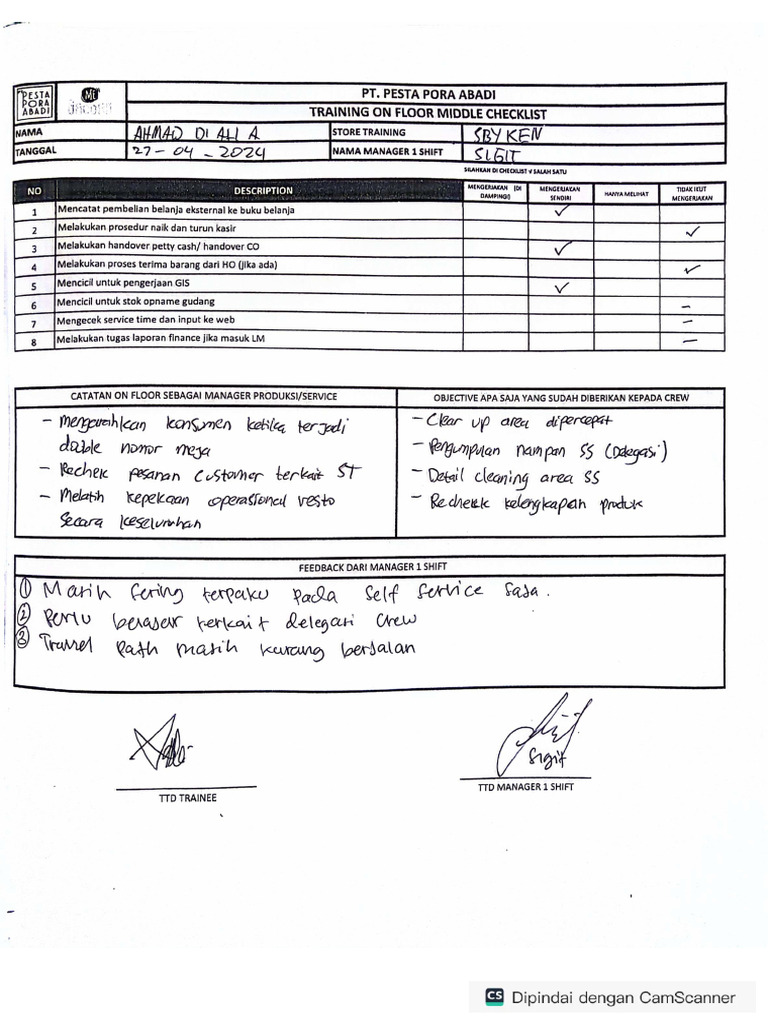 PESTA
PORA
ABADI
PT. PESTA PORA ABADI
TRAINING ON FLOOR MIDDLE CHECKLIST
NAMA AHMAD DI ALI A STORE TRAINING SBY KEN
TANGGAL 27-04-2024 NAMA MANAGER 1 SHIFT SIGIT
SILAHKAN DI CHECKLIST V SALAH SATU
NO DESCRIPTION MENGERJAKAN (DI DAMPINGI) MENGERJAKAN SENDIRI HANYA MELIHAT TIDAK IKUT MENGERJAKAN
1 Mencatat pembelian belanja eksternal ke buku belanja ✓
2 Melakukan prosedur naik dan turun kasir ✓
3 Melakukan handover petty cash/ handover CO ✓
4 Melakukan proses terima barang dari HO (jika ada) ✓
5 Mencicil untuk pengerjaan GIS ✓
6 Mencicil untuk stok opname gudang –
7 Mengecek service time dan input ke web –
8 Melakukan tugas laporan finance jika masuk LM –
CATATAN ON FLOOR SEBAGAI MANAGER PRODUKSI/SERVICE
- Mengarahkan konsumen ketika terjadi
double nomor meja
- Rechek pesanan customer terkait ST
- Melatih kepekaan operasional resto
secara keseluruhan
OBJECTIVE APA SAJA YANG SUDAH DIBERIKAN KEPADA CREW
- Clear up area dipercepat
- Pengumpulan nampan SS (Delegasi)
- Detail cleaning area SS
- Rechek kelengkapan produk
FEEDBACK DARI MANAGER 1 SHIFT
① Masih sering terpaku pada self service saja.
② Perlu belajar terkait delegasi crew
③ Travel Path masih kurang berjalan
Sigit
TTD TRAINEE
TTD MANAGER 1 SHIFT
CS Dipindai dengan CamScanner